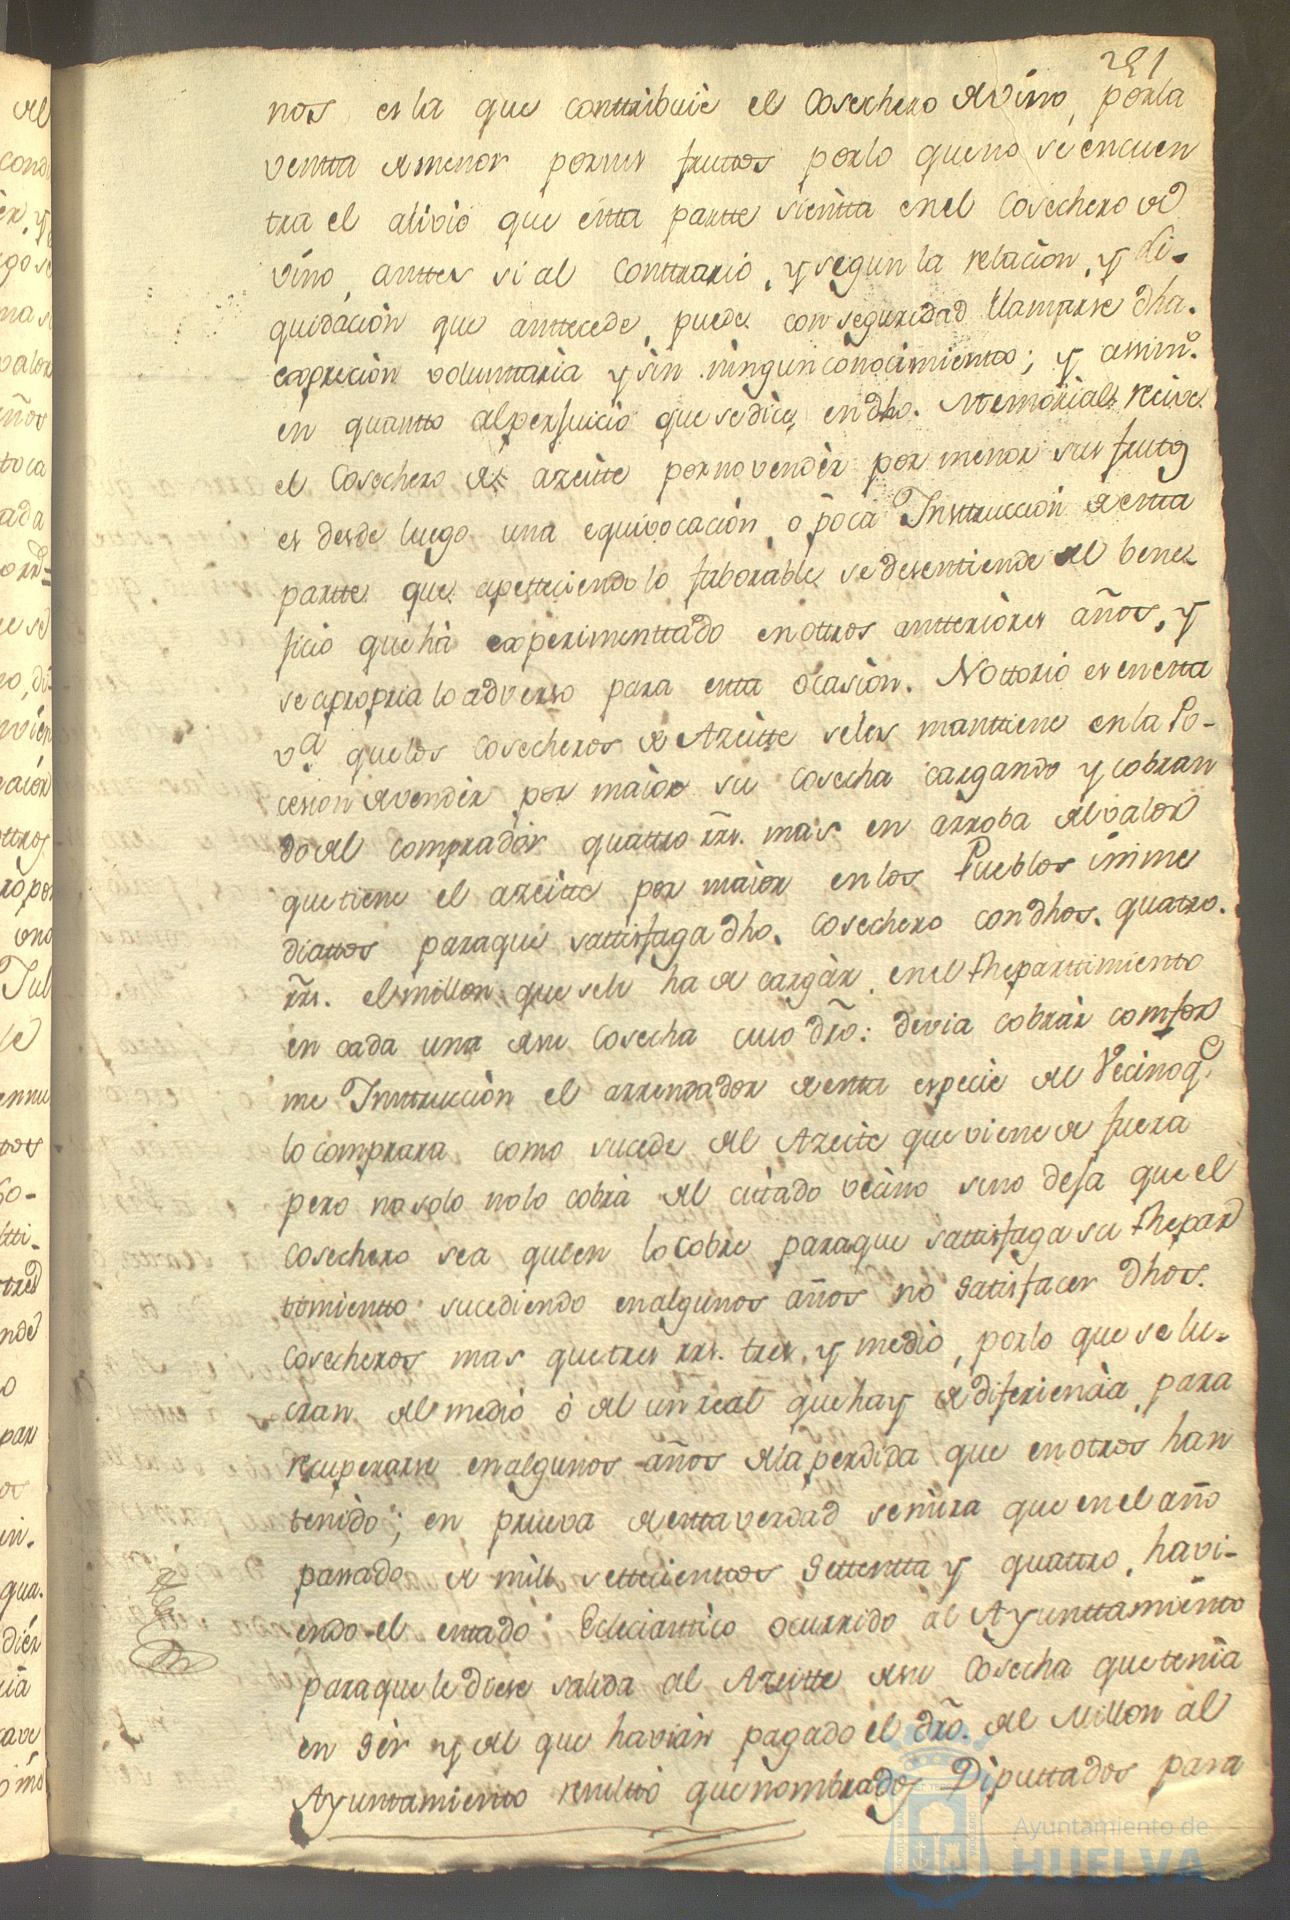 291
nos es la que conttribuiè el Cosechero de vino, por la
ventta de menor por sus fruttos por lo que no se encuen
tra el alivio que estta partte sientta en el Cosechero de
vino, anttes si al Conttrario, y segun la relacion, y li-
quidaciòn que anttecede, puede con seguridad llamarse dha.
expreciòn voluntaria y sin ningun conocimientto; y assimo.
en quantto al perjuicio que se dice, en dho. Memorial, recive
el Cosechero de azeitte por no vendèr por menor sus frutos
es desde luego una equivocaciòn, o poca Insttrucciòn de estta
partte que apetteciendo lo faborable se desentiende del bene
ficio que hà experimenttado en ottros antteriòres años, y
se apropria lo adverso para estta ocasiòn. Nottorio es en estta
va. que los Cosecheros de Azeitte se les manttiene en la Po-
cesion de vendèr por maior su cosecha cargando y cobran
do del Comprador quattro rrs. mas en arroba del valor
que tiene el azeitte por maior en los Pueblos inme
diattos para que sattisfaga dho. Cosechero con dhos. quatro.
rrs. el millon que se le ha de cargàr en el Reparttimiento
en cada una de su Cosecha cuio dro: devia cobrar confor
me Insttrucciòn el arrendador de estta especie del Vecino qe.
lo comprara como sucede del Azeite que viene de fuera
pero no solo no lo cobra del cittado vecino sino deja que el
Cosechero sea quien lo cobre para que sattisfaga su Repar
timientto sucediendo en algunos años no satisfacer dhos.
Cosecheros mas que tres rrs. tres, y medio, por lo que se lu-
cran del medio ò del un real que hay de diferiencia, para
recuperarse en algunos años de la perdida que en otros han
tenido; en prueva de estta verdad se mira que en el año
passado de mill settecienttos settentta y quattro, havi-
endo el esttado Ecleciasttico ocurrido al Ayunttamiento
para que le diese salida al Azeitte de su Cosecha que tenia
en ser y del que havian pagado el dro. del Millon al
Ayuntamiento resulttò que nombrados Diputtados para
Ayuntamiento de
HUELVA